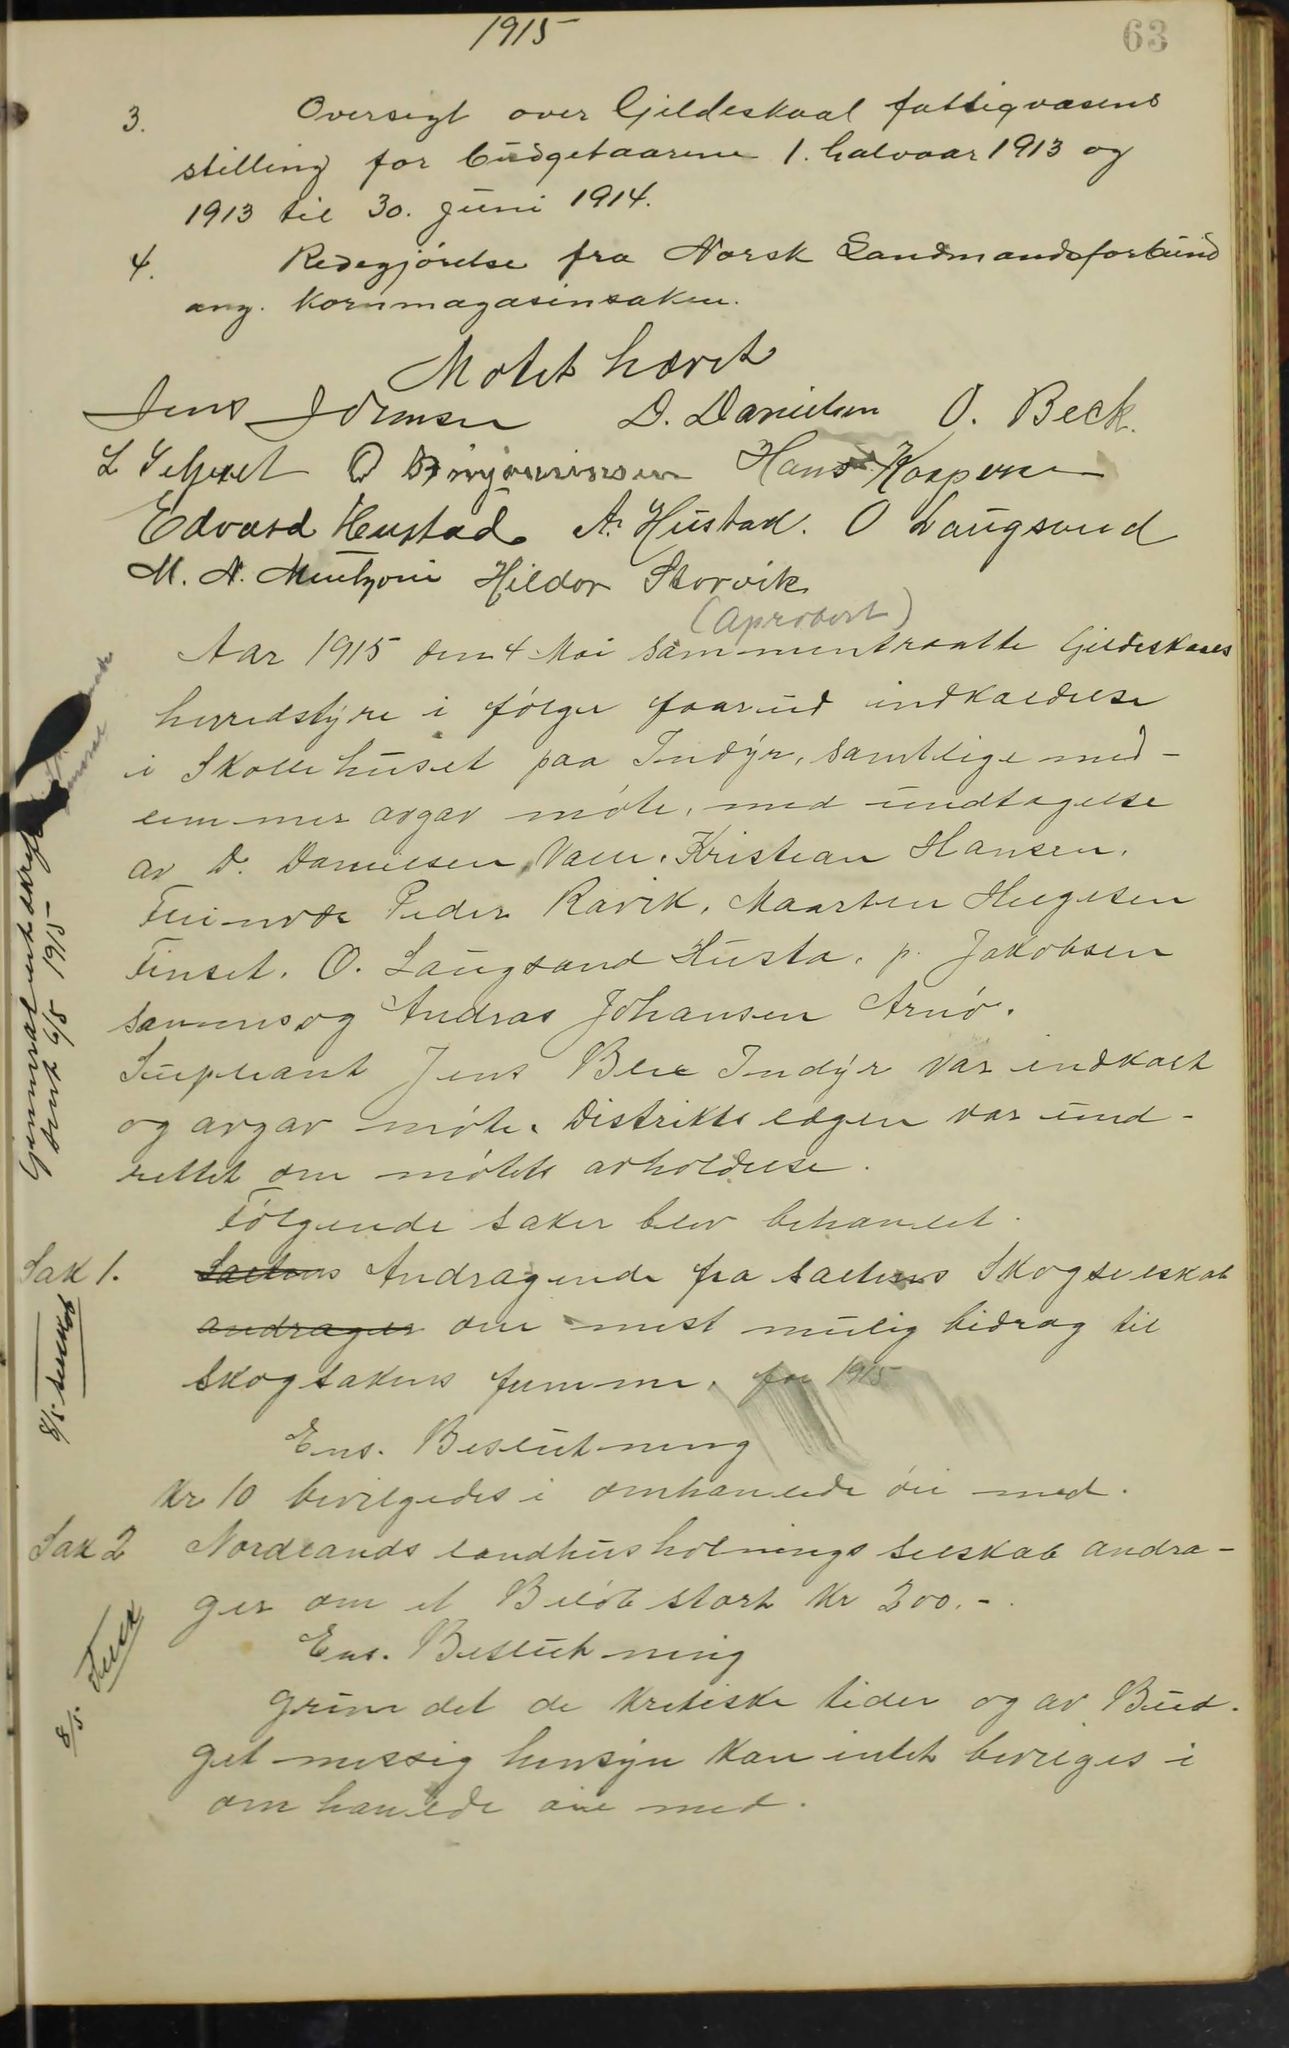 1915
63
3. Oversigt over Gildeskaal fattigvæsens
stilling for budgetaarene 1. halvaar 1913 og
1913 til 30. juni 1914.
4. Redegjørelse fra Norsk Landmandsforbund
ang. kornmagasinsaken.
Møtet hævet
Jens Johnsen D. Danielsen O. Beck.
Hans Kaspersen
Edvard Hustad A. Hustad. O Laugsand
M. N. Mentzoni Hildor Storvik
(Aprobert)
Aar 1915 den 4 Mai sammentraatte Gildeskaals
herredstyre i følge forud indkaldelse
i Skolehuset paa Indyr, samtlige med-
lemmer avgav møte, med undtagelse
av D. Danielsen, Kristian Hansen.
Peder Ravik, Maarten Helgesen
Finset. O. Laugsand Husta. p. Jakobsen
og Andras Johansen Arnø.
Supleant Jens Indyr var indkalt
og avgav møte. Distriktslægen var und-
rettet om møtets avholdelse.
Følgende saker blev behandlet.
Sak 1. Saltens Andragende fra Saltens Skogselskab
andrager om mest mulig bidrag til
skogsakens fremme. for 1915
Ens. Beslutning
Kr 10 bevilgedes i omhandlede øiemed.
Sak 2 Nordlands landhusholdnings selskab andra-
ger om et Beløb stort Kr 200.-
Ens. Beslutning
Grundet de kritiske tider og av Bud-
get messig hensyn kan intet bevilges i
omhandlede øiemed.
Gjennemgaaende
6/5 1915
8/5 selskab
8/5